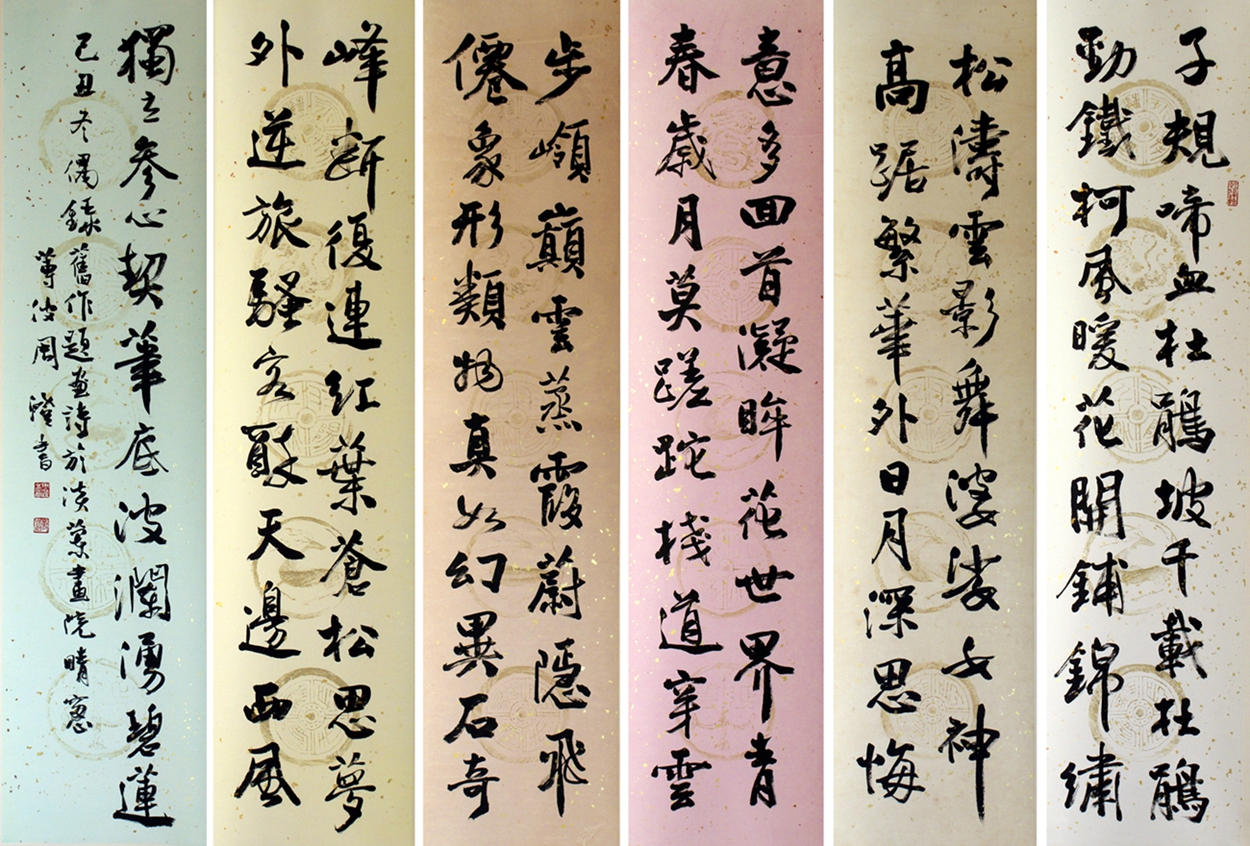 子規啼血杜鵑坡千載杜鵑
勁鐵柯風暖花開鋪錦繡
松濤雲影舞婆娑女神
高踞繁華外日月深思悔
意多回首凝眸花世界青
春歲月莫蹉跎棧道穿雲
步嶺巔雲蒸霞蔚隱飛
僊象形類物真如幻異石奇
峰斷復連紅葉蒼松思夢
外逆旅騷客天邊西風
獨立參心契筆底波瀾湧碧蓮
己丑冬偶錄舊作題畫詩於淡畫院晴窻
蓴波周澄書